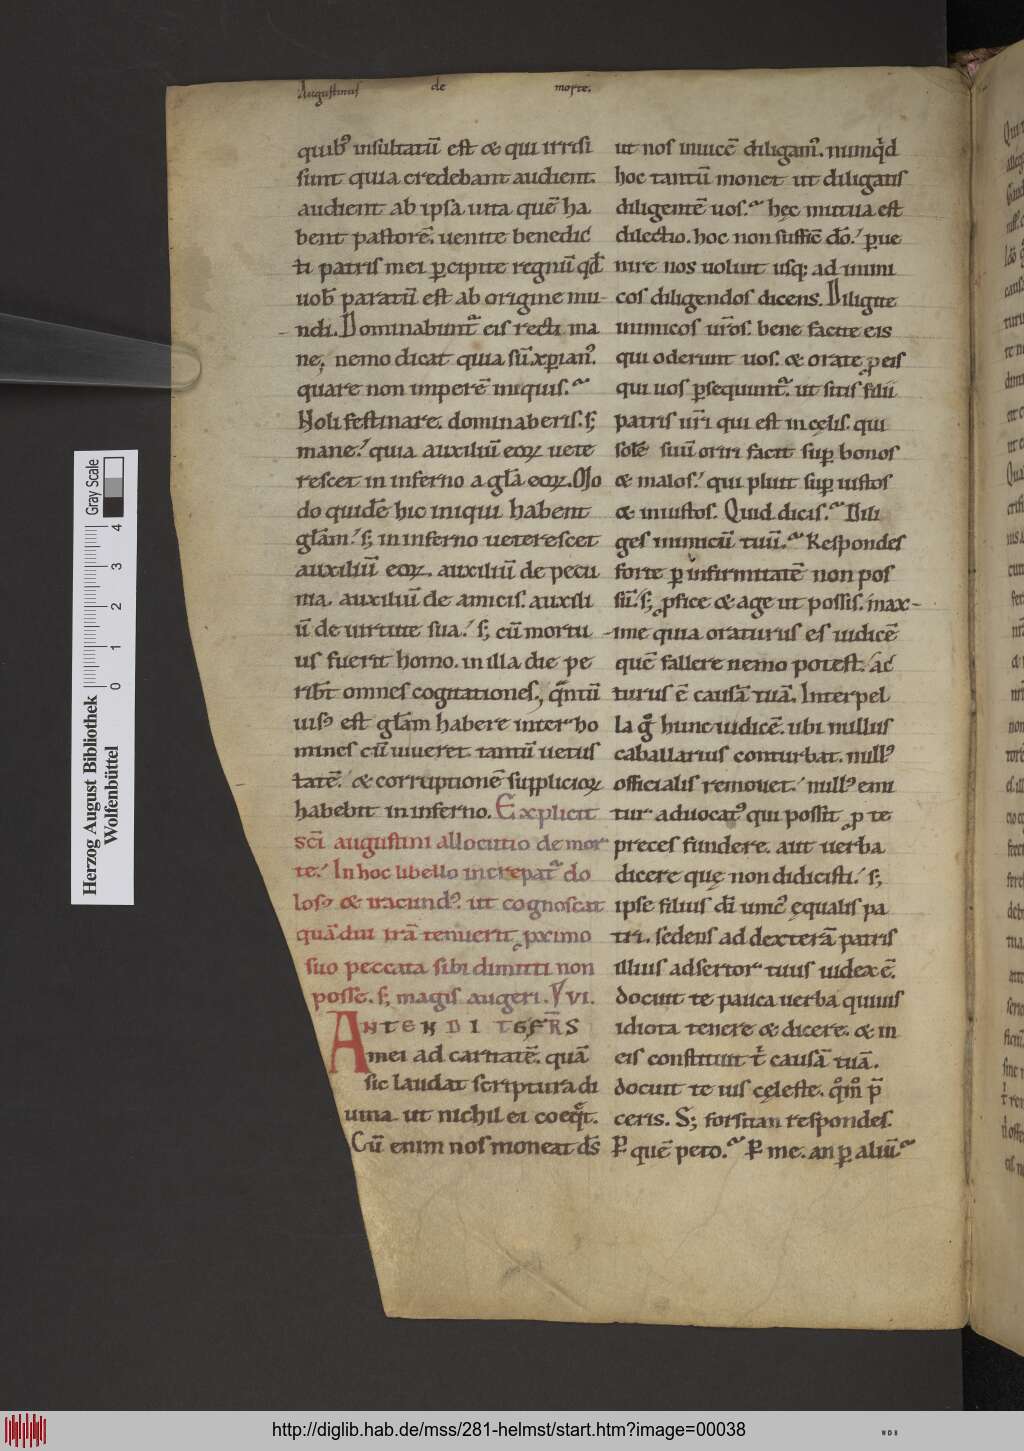 Augustinus de morte.
quib⁹ insultatū est & qui irrisi
sunt quia credebant audient.
audient ab ipsa uita quē ha
bent pastorē. uenite benedic
ti patris mei p̄cipite regnū qd̄
uob̄ paratū est ab origine mu-
ndi. Dominabunt̄ eis recti ma
ne, nemo dicat quia sū xp̄ian⁹.
quare non imperē iniquis.
Noli festinare. dominaberis. s;
mane. quia auxiliū eoꝝ uete
rescet in inferno a gl̄a eoꝝ. Mo
do quidē hic iniqui habent
gl̄am. s; in inferno ueterescet
auxiliū eoꝝ. auxiliū de pecu
nia. auxiliū de amicis. auxili
ū de uirtute sua. s; cū mortu
us fuerit homo. in illa die pe
ribt̄ omnes cogitationes., q̄ntū
uis⁹ est gl̄am habere inter ho
mines cū uiueret. tantū uetus
tatē. & corruptionē supplicioꝝ
habebit in inferno. Explicit
sc̄i augustini allocutio de mor
te. In hoc libello increpat̄ do
los⁹ & iracund⁹. ut cognoscat
quādiu irā tenuerit ꝓximo
suo peccata sibi dimitti non
posse. s; magis augeri. VVI.
ANTENDITE FR̄S
mei ad caritatē. quā
sic laudat scriptura di
uina. ut nichil ei coeq̄t.
Cū enim nos moneat ds̄
ut nos inuicē diligam⁹. nunqd̄
hoc tantū monet ut diligatis
diligentē uos. hęc mutua est
dilectio. hoc non suffic̄ dō. ꝑue
nire nos uoluit usq; ad inimi
cos diligendos dicens. Diligite
inimicos ur̄os. bene facite eis
qui oderunt uos. & orate ꝓ eis
qui uos ꝑsequunt̄. ut sitis filii
patris ur̄i qui est in cęlis. qui
solē suū oriri facit suꝑ bonos
& malos. qui pluit suꝑ iustos
& iniustos. Quid dicis. Dili
ges inimicū tuū. Respondes
forte ꝑ infirmitatē non pos
sū. s; ꝓfice & age ut possis. max-
ime quia oraturus es iudicē
quē fallere nemo potest. ac
turus ē causā tuā. Interpel
la g̊ hunc iudicē. ubi nullus
caballarius conturbat. null⁹
officialis remouet. null⁹ emi
tur aduocat⁹ qui possit ꝓ te
preces fundere. aut uerba
dicere quę non didicisti. s;
ipse filius dī unic⁹ ęqualis pa
tri. sedens ad dexterā patris
illius adsertor tuus iudex ē.
docuit te pauca uerba quiuis
idiota tenere & dicere. & in
eis constituit t̄ causā tuā.
docuit te ius cęleste. qom̊ p̄
ceris. S; forsitan respondes.
Ꝑ quē peto. Ꝑ me. an ꝑ aliū
Herzog August Bibliothek
Wolfenbüttel
Gray Scale
0 1 2 3 4
http://diglib.hab.de/mss/281-helmst/start.htm?image=00038